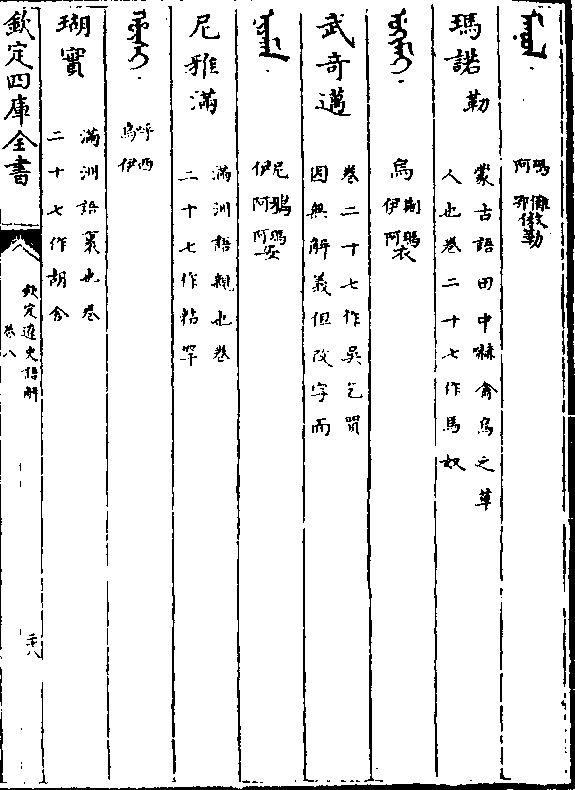 瑪阿 儺鄂傲勒
瑪諾勒
蒙古語田中嚇禽鳥之草
人也卷二十七作馬奴
烏 荊伊 瑪阿衣
武奇邁
卷二十七作吳乞買
因無解義但改字而
尼伊 鴉阿 瑪阿安
尼雅滿
滿洲語親也卷
二十七作粘罕
呼烏 西伊
瑚實
滿洲語裹也卷
二十七作胡舍
欽定四庫全書
欽定遼史語解
卷八